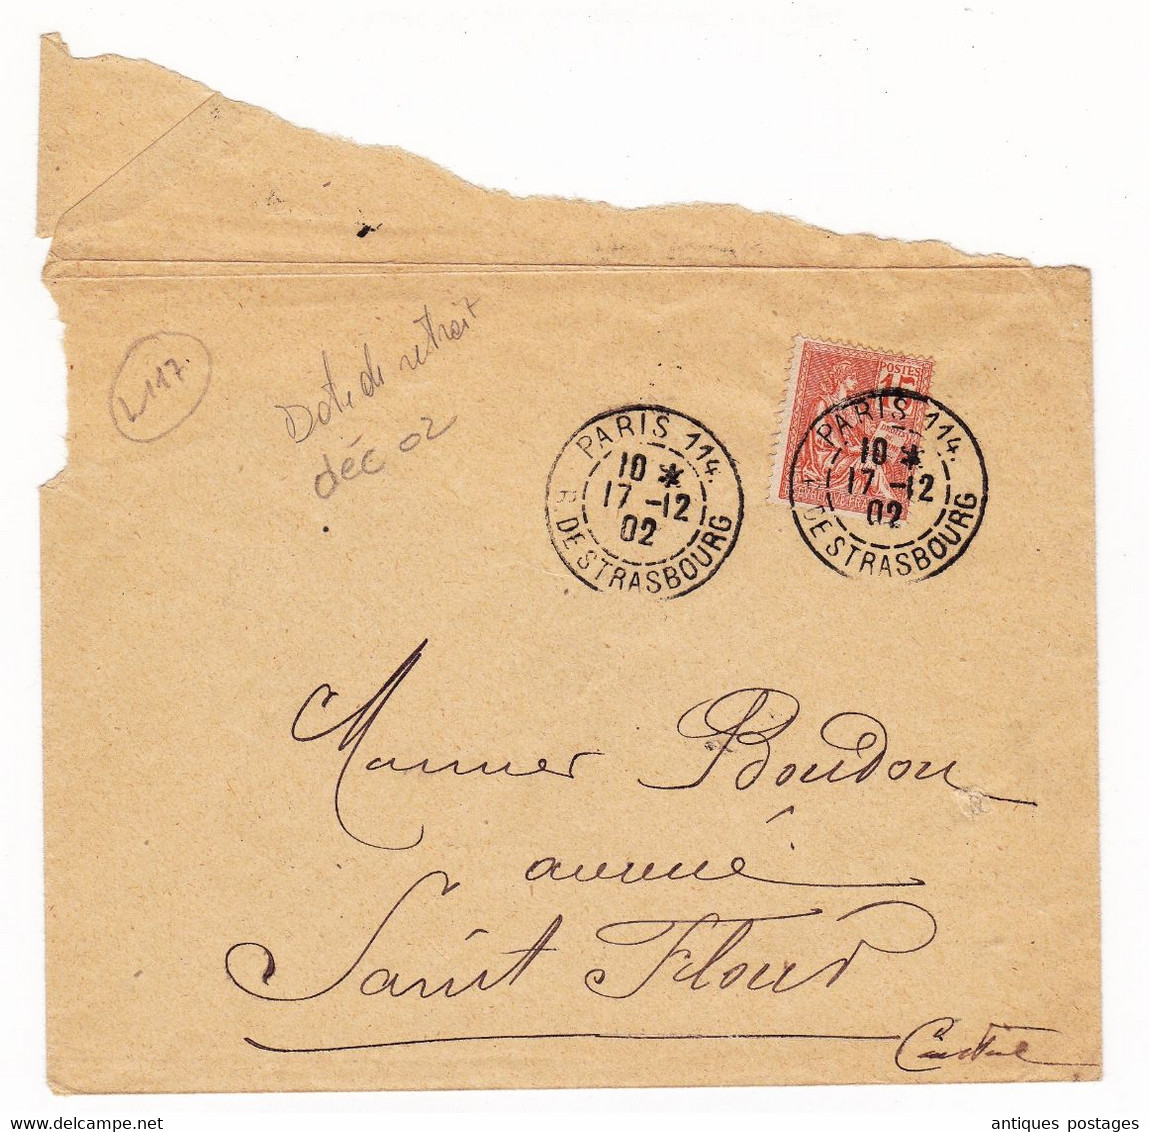 L117.
Date de retrait
déc 02
POSTES
15
PARIS 114.
10 *
17 - 12
02
R. DE STRASBOURG
PARIS 114.
10 *
17 - 12
02
R. DE STRASBOURG
Boudou
avoué
Saint Flour
Cantal
antiques postages